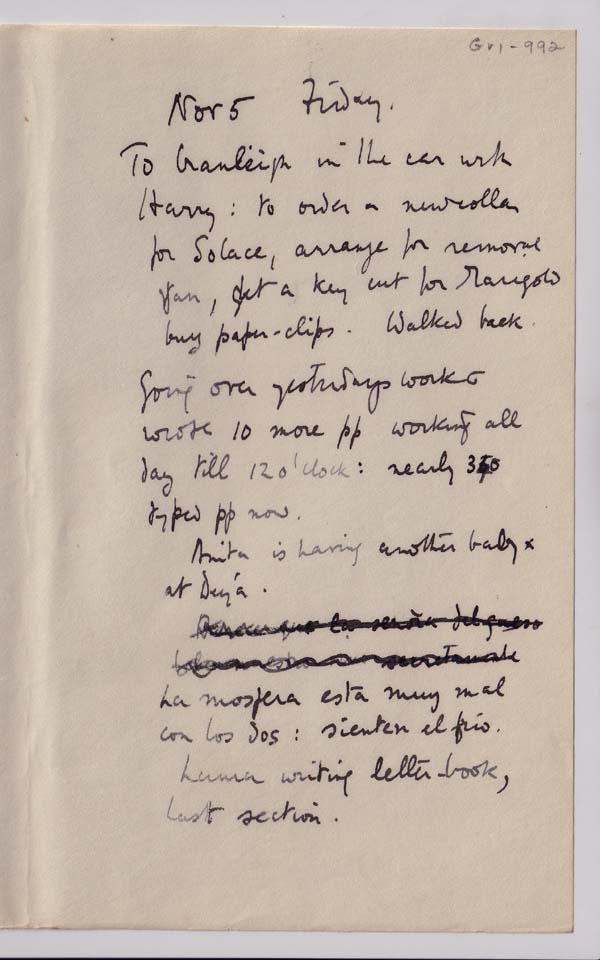 Gv1-992
Nov 5 Friday.
To Cranleigh in the car with
Harry: to order a new collar
for Solace, arrange for removal
van, get a key cut for Marigold
buy paper-clips. Walked back.
Going over yesterdays work &
wrote 10 more pp working all
day till 12 o'clock: nearly 350
typed pp now.
Anita is having another baby x
at Deyá.
que la señora del queso
secretamente
La mosfera está muy mal
con los dos: sienten el frio.
Laura writing letter-book,
last section.